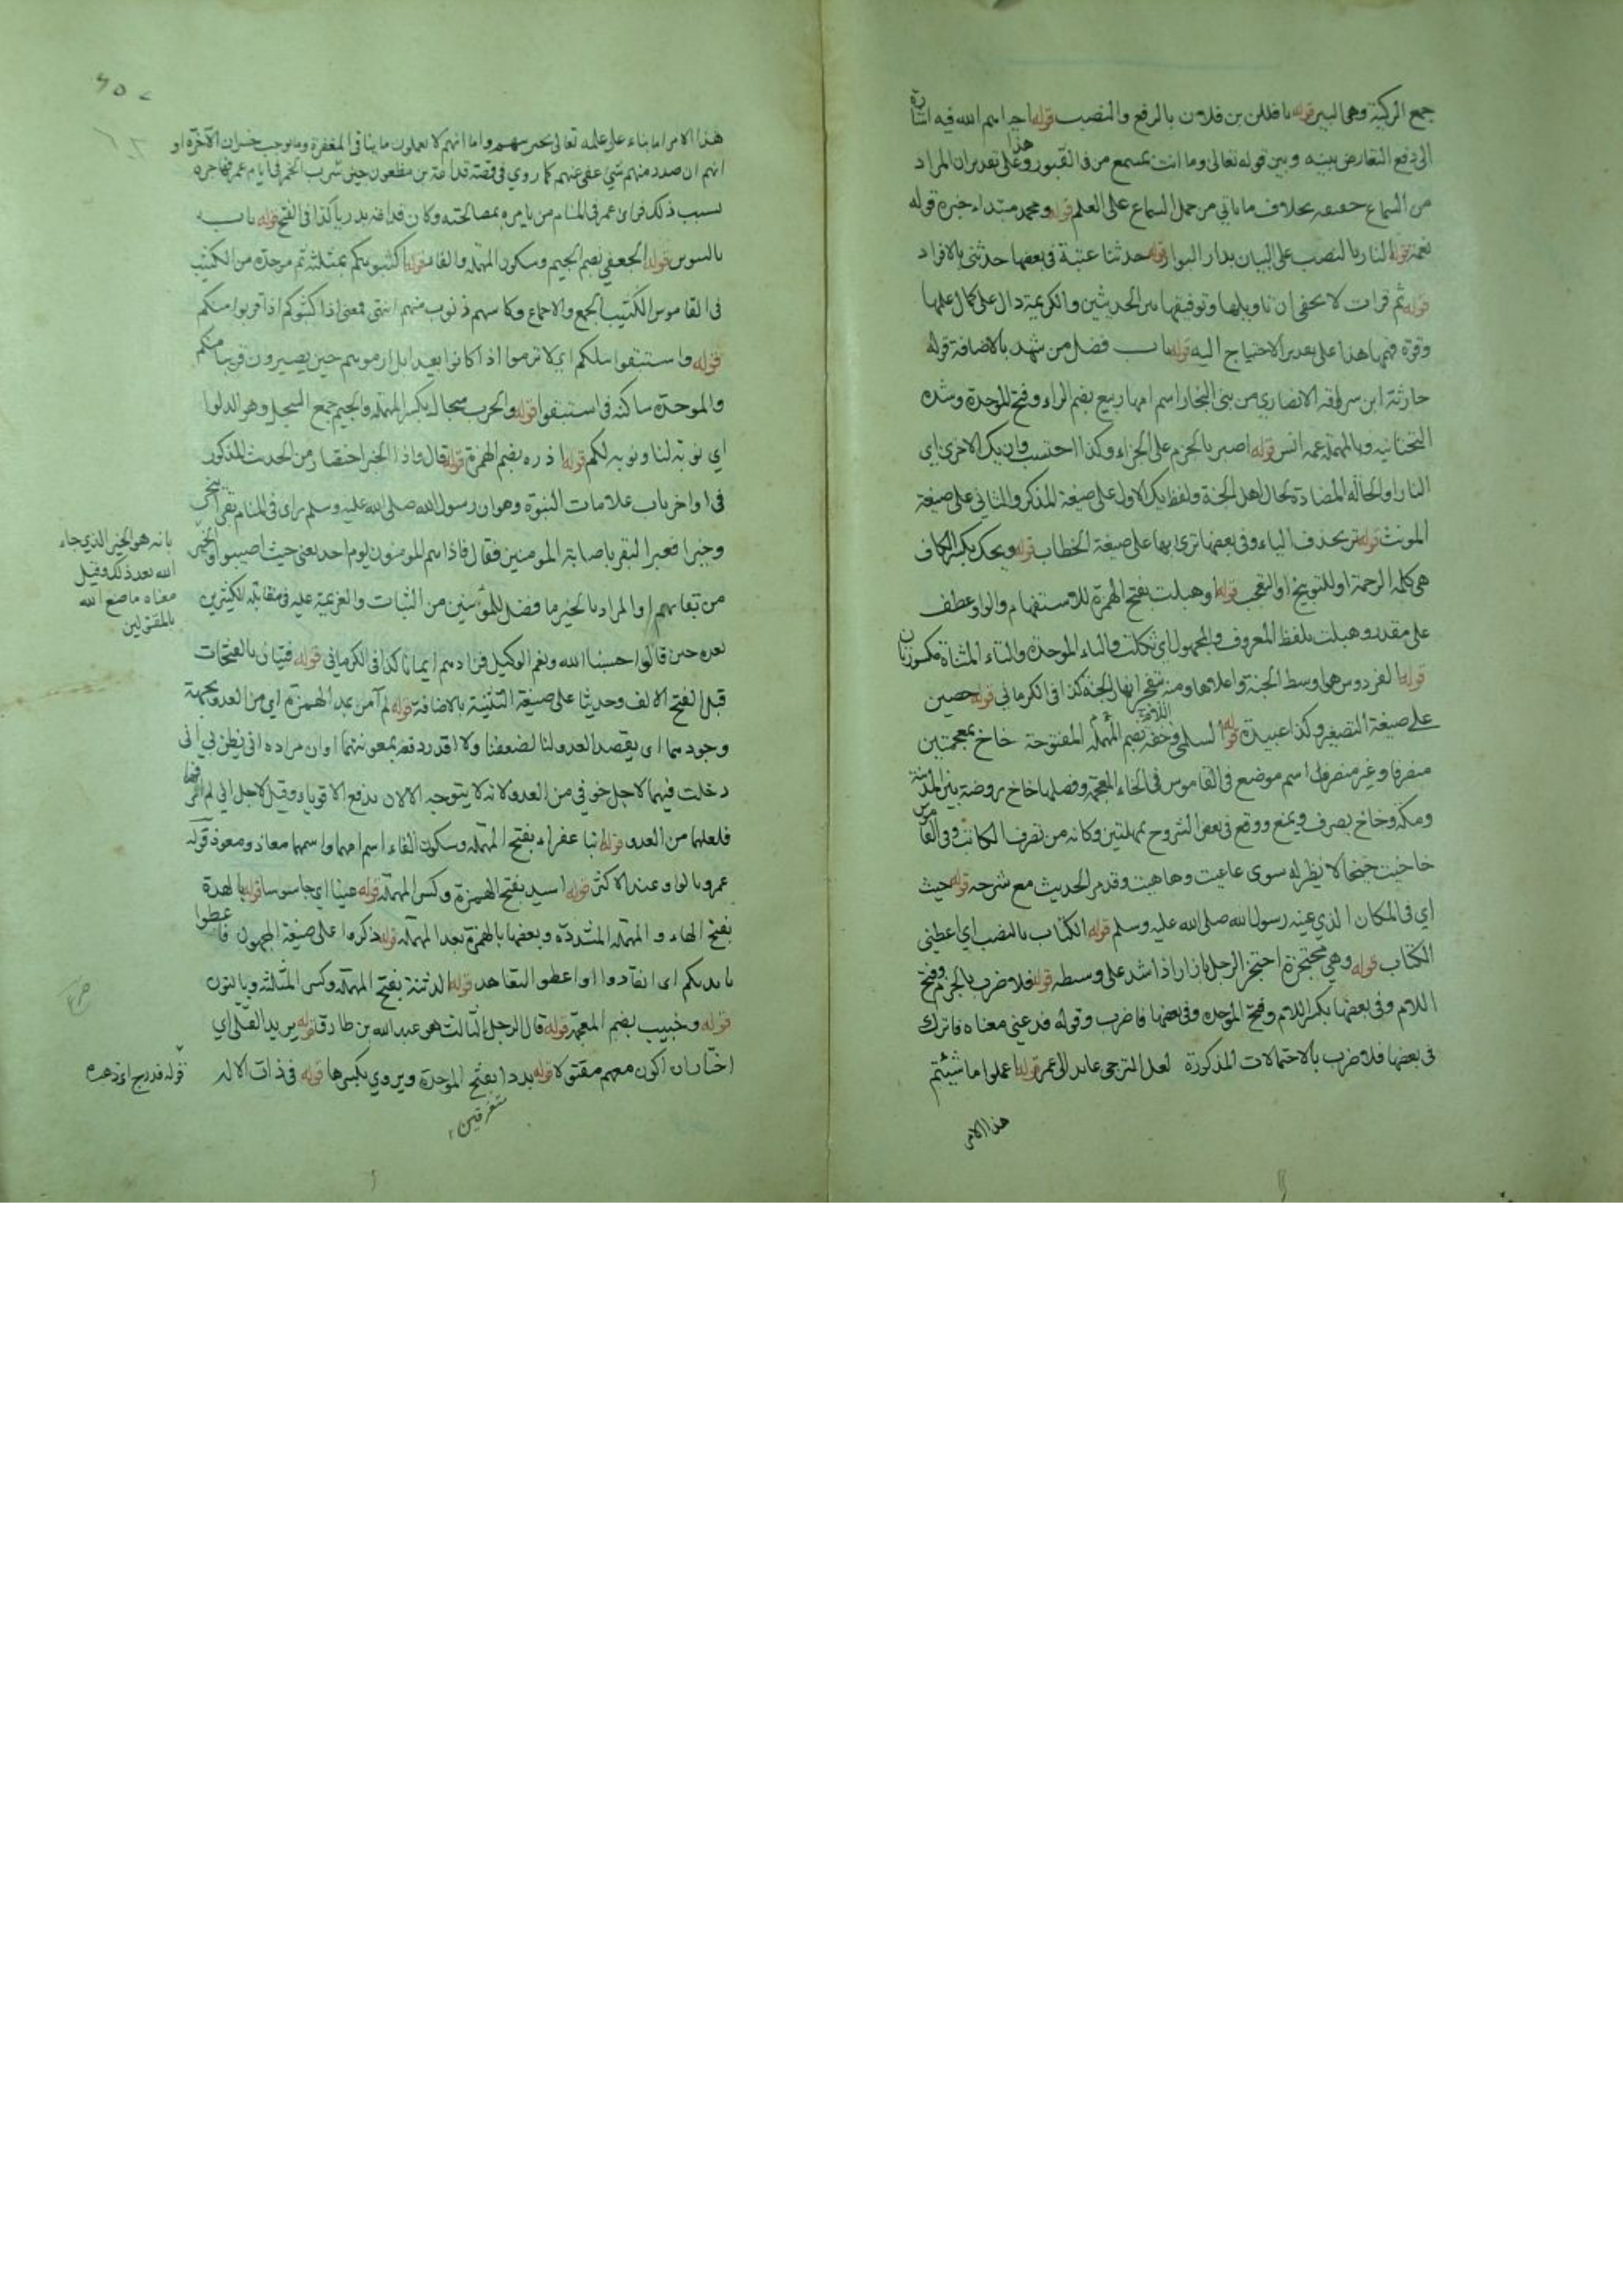 جمع الركية وهى البير قوله يا فلان بن فلان بالرفع والنصب قوله احياهم الله فيه اشارة
الى دفع التعارض بينه وبين قوله تعالى وما انت بمسمع من فى القبور وهذا على تقدير ان المراد
من السماع حقيقته بخلاف ما ياتي من حمل السماع على العلم قوله ومحمد مبتداء خبره قوله
نعمة قوله النار بالنصب على البيان بدار البوار قوله حدثنا عتبة فى بعضها حدثنى بالافراد
قوله ثم قرات لا يخفى ان تاويلها وتوفيقها بين الحديثين والكريمة دال على كمال علمها
وقوة فهمها هذا على تقدير الاحتياج اليه قوله باب فضل من شهد بالاضافة قوله
حارثة ابن سراقة الانصاري من بنى النجار اسم امها ربيع بضم الراء وفتح الموحدة وشدة
التحتانية وبالمهملة عمة انس قوله اصبر بالجزم على الجزاء وكذا احتسب وان يك الاخرى اي
النار او الحالة المضادة لحال اهل الجنة ولفظ يك الاول على صيغة المذكر والثاني على صيغة
المونث قوله تر بحذف الياء وفى بعضها ترى بها على صيغة الخطاب قوله ويحك بكسر الكاف
هى كلمة الرحمة او للتوبيخ او التعجب قوله اوهبلت بفتح الهمزة للاستفهام والواو عطف
على مقدر وهبلت بلفظ المعروف والمجهول اي ثكلت والباء الموحدة والتاء المثناة مكسورتان
قوله الفردوس هى اوسط الجنة واعلاها ومنه تتفجر انهار الجنة كذا فى الكرماني قوله حصين
على صيغة التصغير وكذا عبيدة قوله السلمى وخفة بضم المهملة اللام المفتوحة خاخ بمعجمتين
منصرفا وغير منصرف اسم موضع فى القاموس فى الخاء المعجمة وفصلها خاخ روضة بين المدينة
ومكة وخاخ يصرف ويمنع ووقع فى بعض الشروح بمهملتين وكانه من تصرف الكاتب وفى القاموس
حاحيت حيحا لا نظير له سوى عاعيت وهاهيت وقد مر الحديث مع شرحه قوله حيث
اي فى المكان الذي عينه رسول الله صلى الله عليه وسلم قوله الكتاب بالنصب اي اعطينى
الكتاب قوله وهي محتجزة احتجز الرجل بازار اذا شد على وسطه قوله فلاضرب بالجزم وفتح
اللام وفى بعضها بكسر اللام وفتح الموحدة وفى بعضها فاضرب وقوله فدعنى معناه فاترك
فى بعضها فلاضرب بالاحتمالات المذكورة لعل الترجى عايد الى عمر قوله اعملوا ما شيتم
هذا الامر
هذا الامر اما بناء على علمه تعالى واما انهم لا يعملون ما ينافى المغفرة وما يوجب خسران الآخرة او
انهم ان صدر منهم شئ عفى عنهم كما روي فى قصة قدامة بن مظعون حين شرب الخمر فى ايام عمر فهاجره
بسبب ذلك فراى عمر فى المنام من يامره بمصالحته وكان قدامة بدريا كذا فى الفتح قوله باب
بالتنوين قوله الجعفي بضم الجيم وسكون المهملة والفاء قوله اكثبوكم بمثلثة ثم موحدة من الكثيب
فى القاموس الكثيب الجمع والاجتماع وكاسهم ذنوب منهم انتهى فمعنى اذا كثبوكم اذا قربوا منكم
قوله واستبقوا نبلكم اي لا ترموا اذا كانوا بعيدا بل ارموهم حين يصيرون قريبا منكم
والموحدة ساكنة فى استبقوا قوله والحرب سجال بكسر المهملة والجيم جمع السجل وهو الدلو
اي نوبة لنا ونوبة لكم قوله اذ ره بضم الهمزة قوله قال واذا الخير اختصار من الحديث المذكور
فى اواخر باب علامات النبوة وهو ان رسول الله صلى الله عليه وسلم راى فى المنام بقرا ينحر
وخيرا فعبر البقر باصابة المومنين فقال فاذا هم المومنون يوم احد يعنى حيث اصيبوا والخير
بانه هو الخير الذي جاء
الله بعد ذلك وقيل
معناه ما صنع الله
بالمقتولين
او المراد بالخير ما فضل للمؤمنين من الثبات والعزيمة عليه فى مقابلة الكثيرين
بعده حين قالوا حسبنا الله ونعم الوكيل فزادهم ايمانا كذا فى الكرماني قوله فتيان بالفتحات
قبل الفتح الالف وحديثا على صيغة التثنية بالاضافة قوله لم آمن بمد الهمزة اي من العدو بجهة
وجودهما اي يقصد العدو لنا لضعفنا ولا اقدر دفعه بمعونتهما او ان مراده انى يظن بي انى
دخلت فيهما لاجل خوفي من العدو لانه لا يتوجه الا لان يدفع الاقوياء وقيل لاجل انى لم
قوله ابنا عفراء بفتح المهملة وسكون الفاء اسم امهما واسمهما معاذ ومعوذ قوله
عمرو بالواو عند الاكثر قوله اسيد بفتح الهمزة وكسر المهملة قوله عينا اي جاسوسا قوله بالهدة
بفتح الهاء و المهملة المشددة وبعضها بالهمزة بعد المهملة قوله ذكروا على صيغة المجهول فاعطوا
بايديكم اي انقادوا او اعطو التعاهد قوله الدثنة بفتح المهملة وكسر المثلثة وبالنون
قوله وخبيب بضم المعجمة قوله قال الرجل الثالث هو عبد الله بن طارق قوله يريد القتلى اي
اختار ان اكون معهم مقتولا قوله بددا بفتح الموحدة ويروي بكسرها قوله فى ذات الاله
متفرقين
قوله فدرج اي ذهب